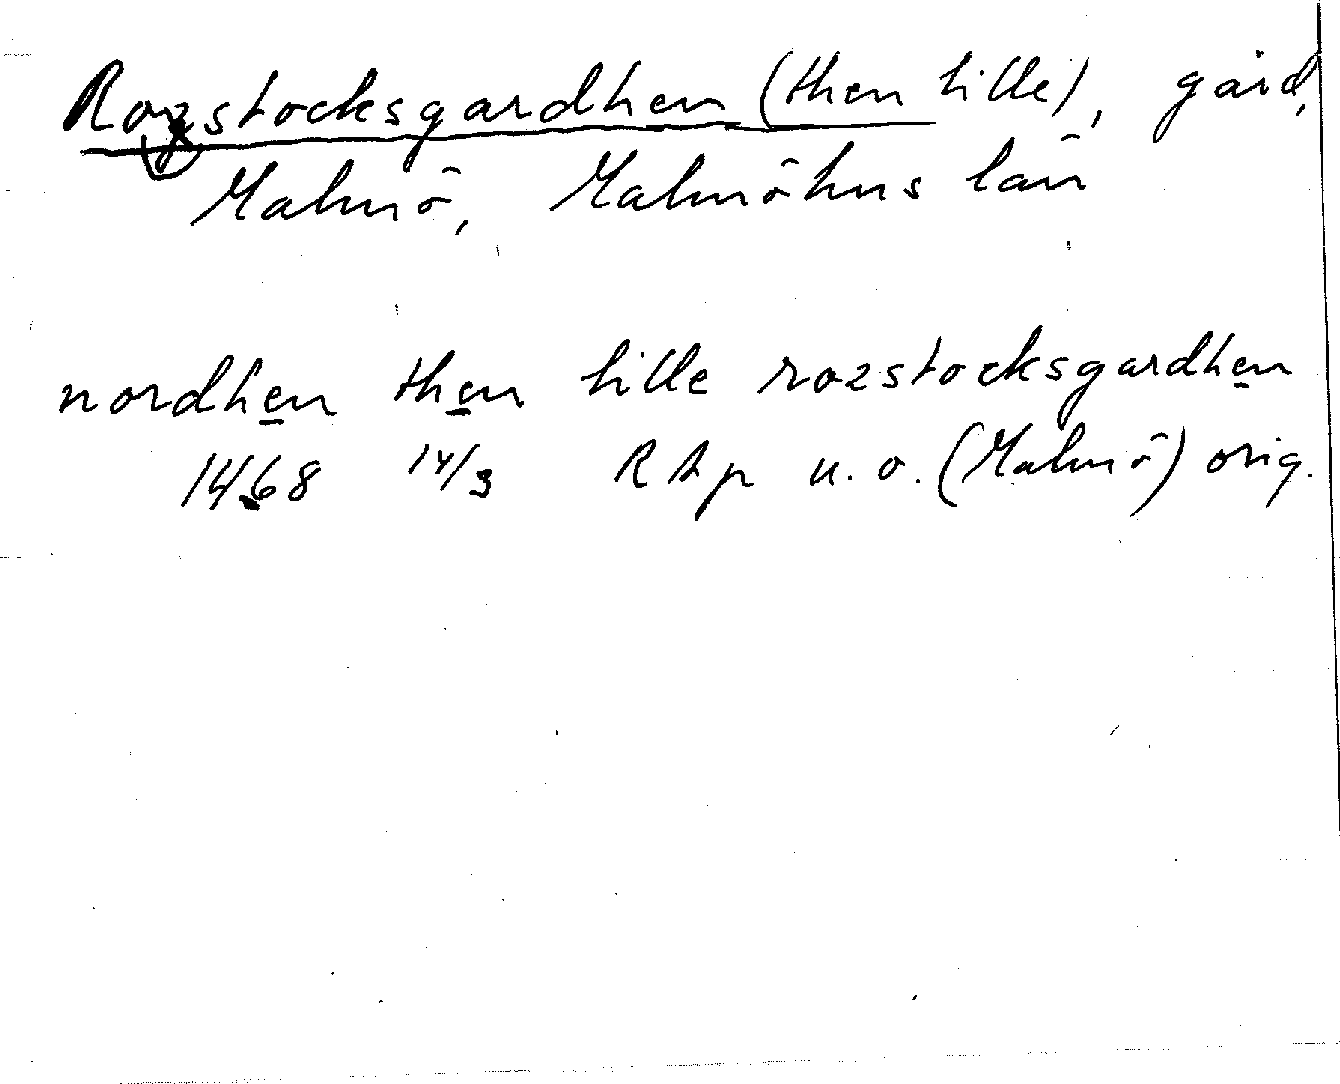 Rozstocksgardhen (then lille), gård,
Malmö, Malmöhus län
nordhen then lille rozstocksgardhen
1468 14/3 RAp u.o. (Malmö) orig.